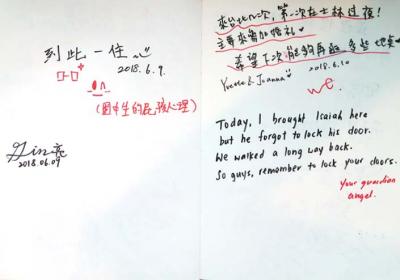 到此一住
2018.6.9.
(國中生的屁孩心理)
2018.06.09
來台北八次,第一次在士林过夜!
主要來參加婚礼
希望下次能夠再 多些地
Yvette & Joanna
2018.6.10
we.
Today, I brought Isaiah here
but he forgot to lock his door.
We walked a long way back.
So guys, remember to lock your doors.
Your guardian
angel.